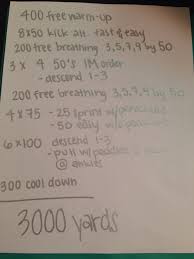 400 free warm-up
8x50 kick alt. fast & easy
200 free breathing 3,5,7,9 by 50
3 x 4 50's IM order
- descend 1-3
200 free breathing 3,5,7,9 by 50
4x75 - 25 sprint w/
- 50 easy w/
6x100 descend 1-3
- pull w/ paddles
@ ankles
300 cool down
3000 yards